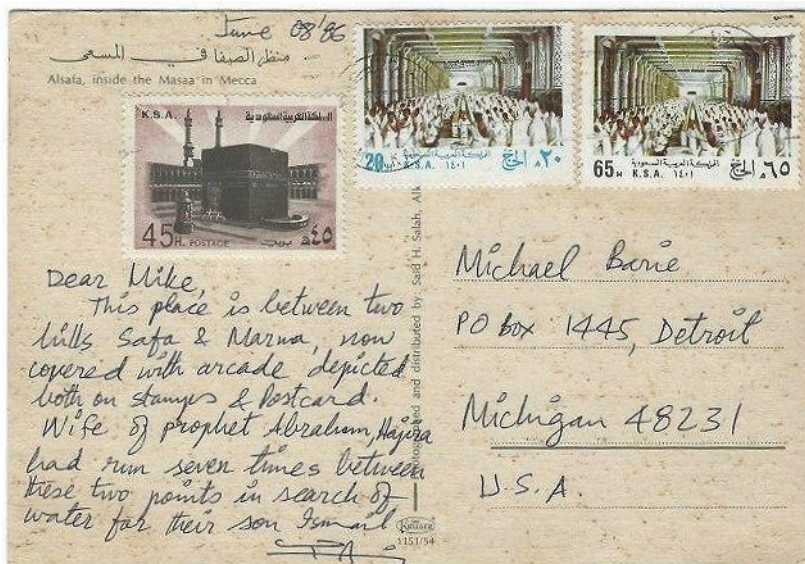 June 08'86
منظر الصفا في المسعى
Alsafa, inside the Masaa in Mecca
K.S.A. المملكة العربية السعودية
45H. POSTAGE بريد ٤٥
20 ٢٠ الحج
المملكة العربية السعودية
K.S.A. ١٤٠١
65H ٦٥ الحج
المملكة العربية السعودية
K.S.A. ١٤٠١
Dear Mike,
This place is between two
hills Safa & Marwa, now
covered with arcade depicted
both on stamps & Postcard.
Wife of prophet Abraham, Hajira
had run seven times between
these two points in search of
water for their son Ismail
Photographed and distributed by: Said H. Salah,
Kruger
1151/54
Michael Barie
PO box 1445, Detroit
Michigan 48231
U.S.A.